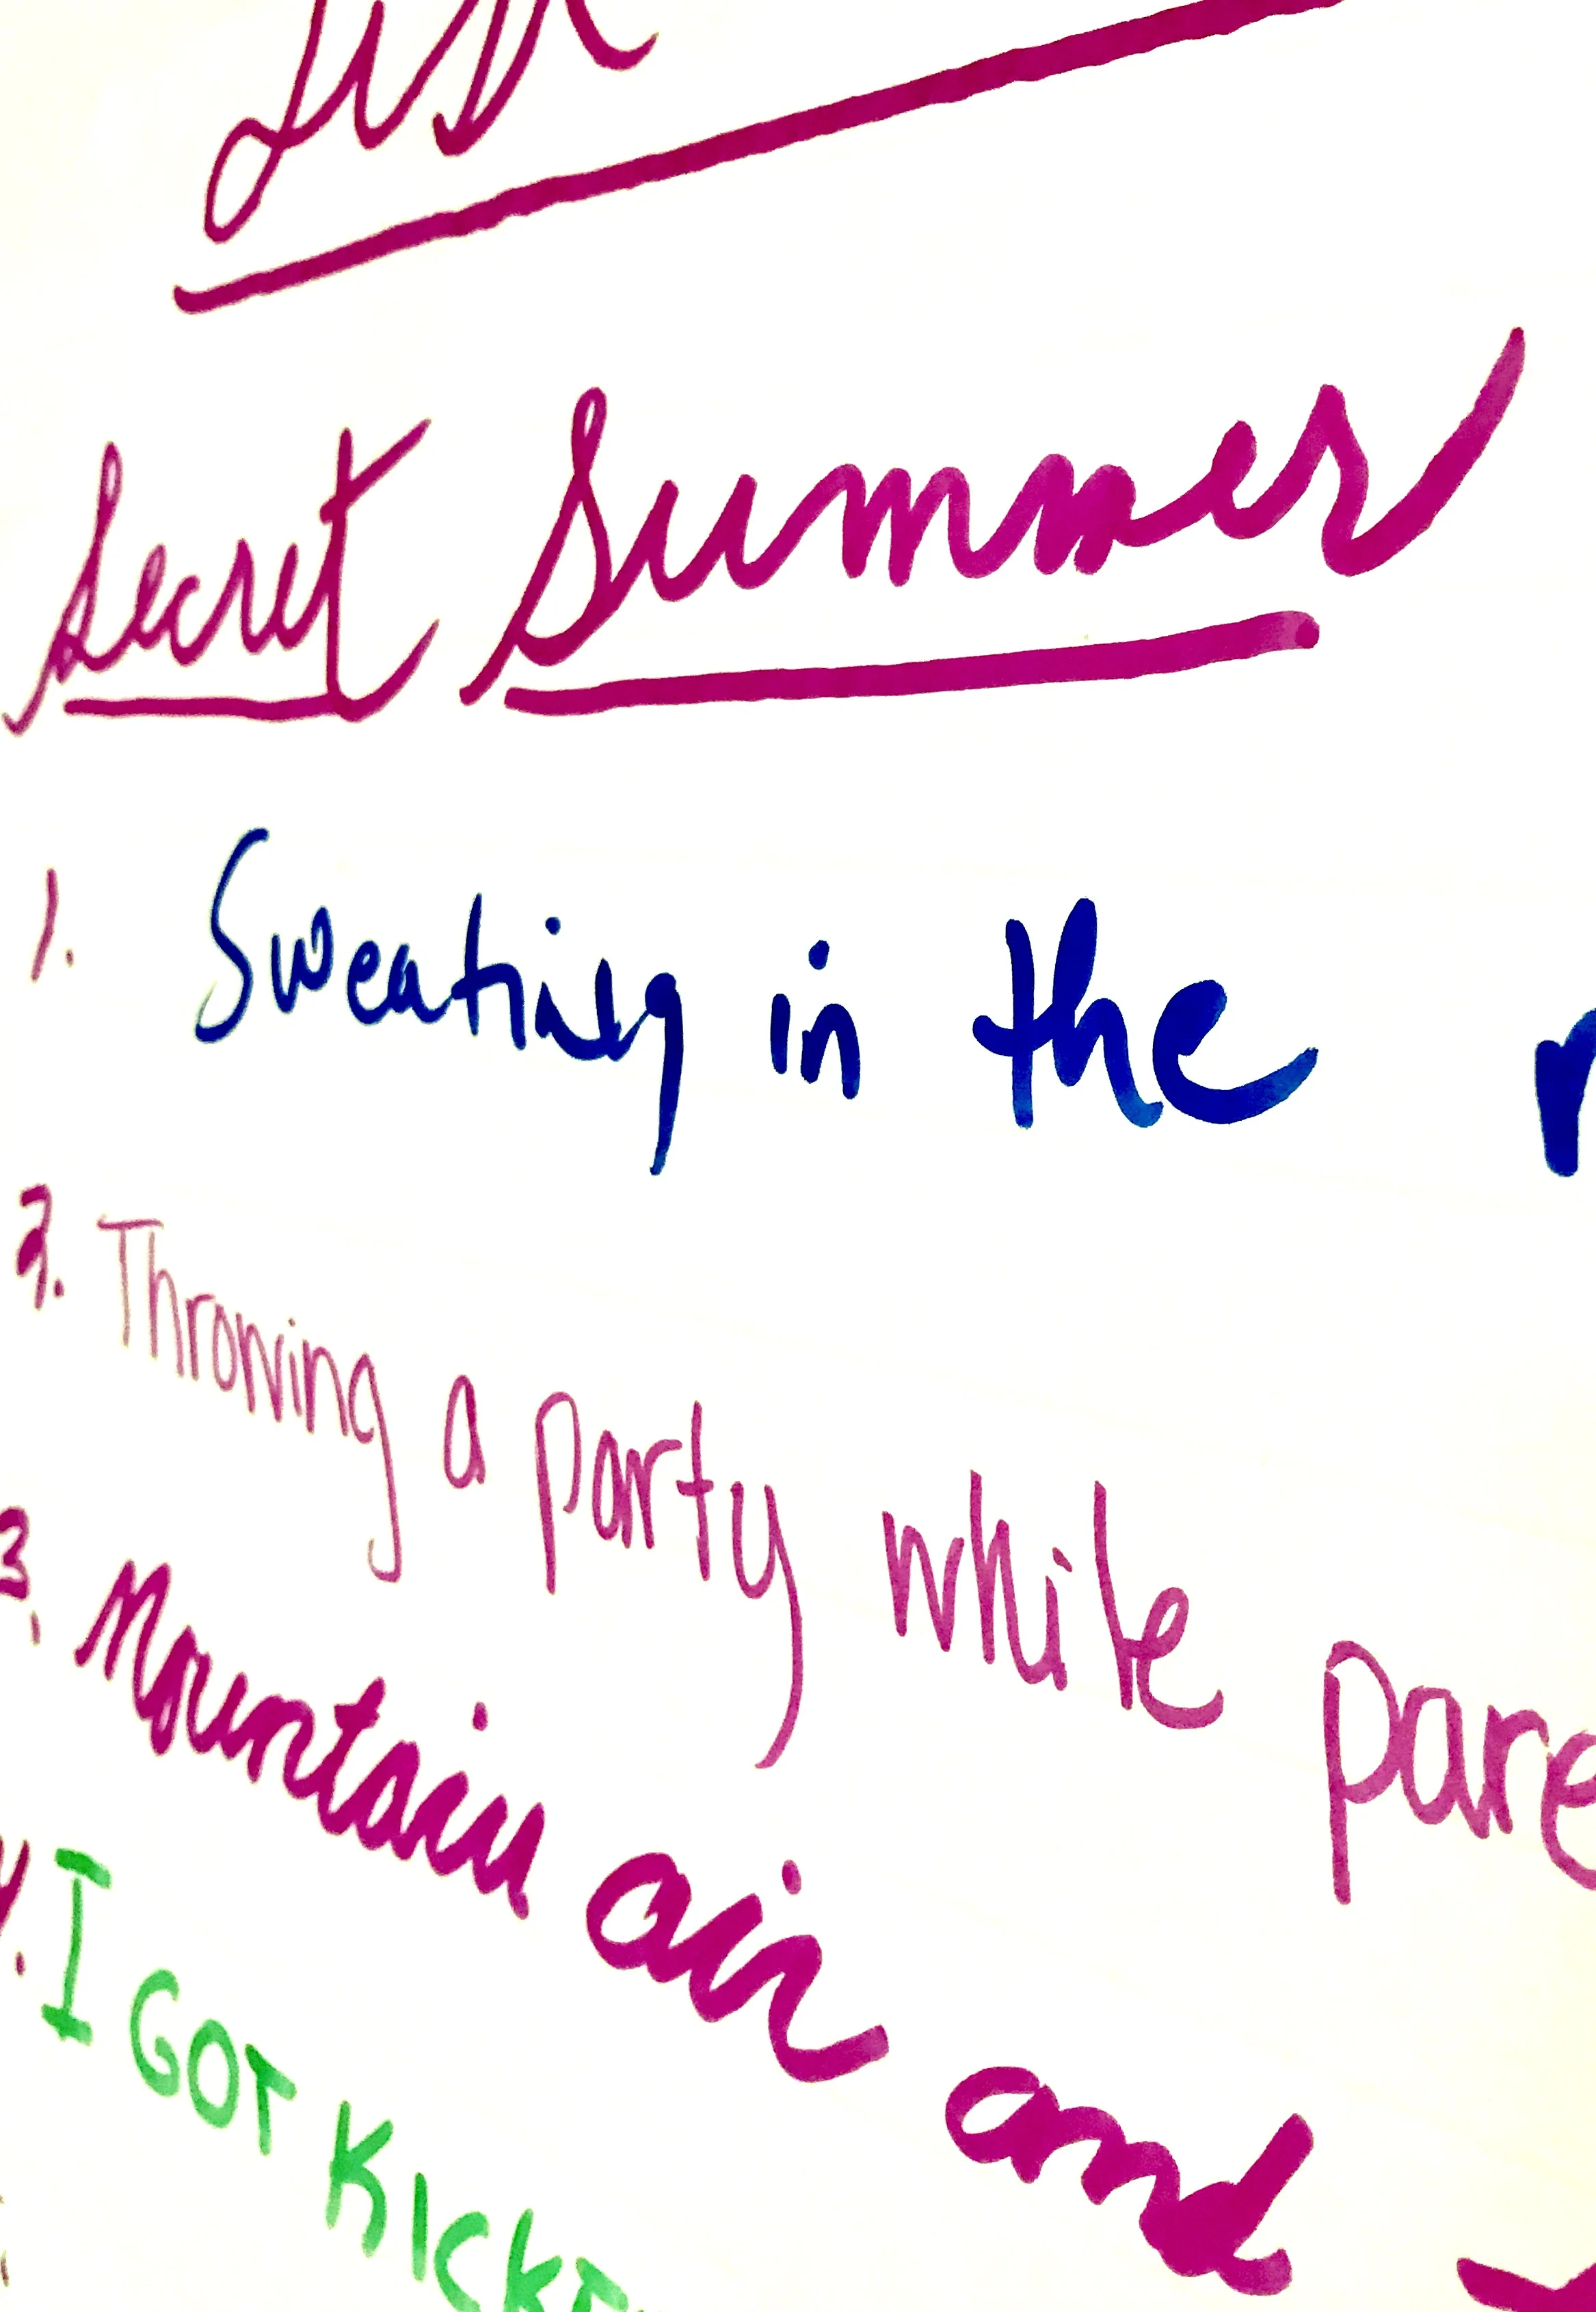 Secret Summer
1. Sweating in the
2. Throwing a party while pare
3. Mountain air and
4. I GOT KICKE